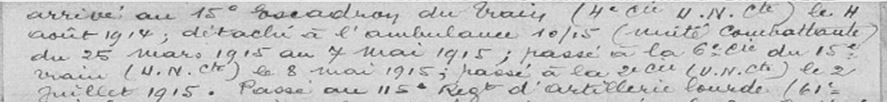 arrivé au 15e Escadron du Train (4e Cie U.N. Cte) le 4
août 1914; détaché à l'ambulance 10/15 (unité combattante)
du 25 mars 1915 au 7 mai 1915; passé à la 6e Cie du 15e
train (U.N. Cte) le 8 mai 1915; passé à la 2e Cie (U.N. Cte) le 2
juillet 1915. Passé au 115e Régt d'artillerie lourde (61e